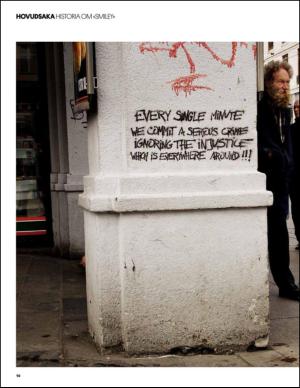 HOVUDSAKA HISTORIA OM «SMILEY»
EVERY SINGLE MINUTE
WE COMMIT A SERIOUS CRIME
IGNORING THE "INJUSTICE"
WHICH IS EVERYWHERE AROUND!!!